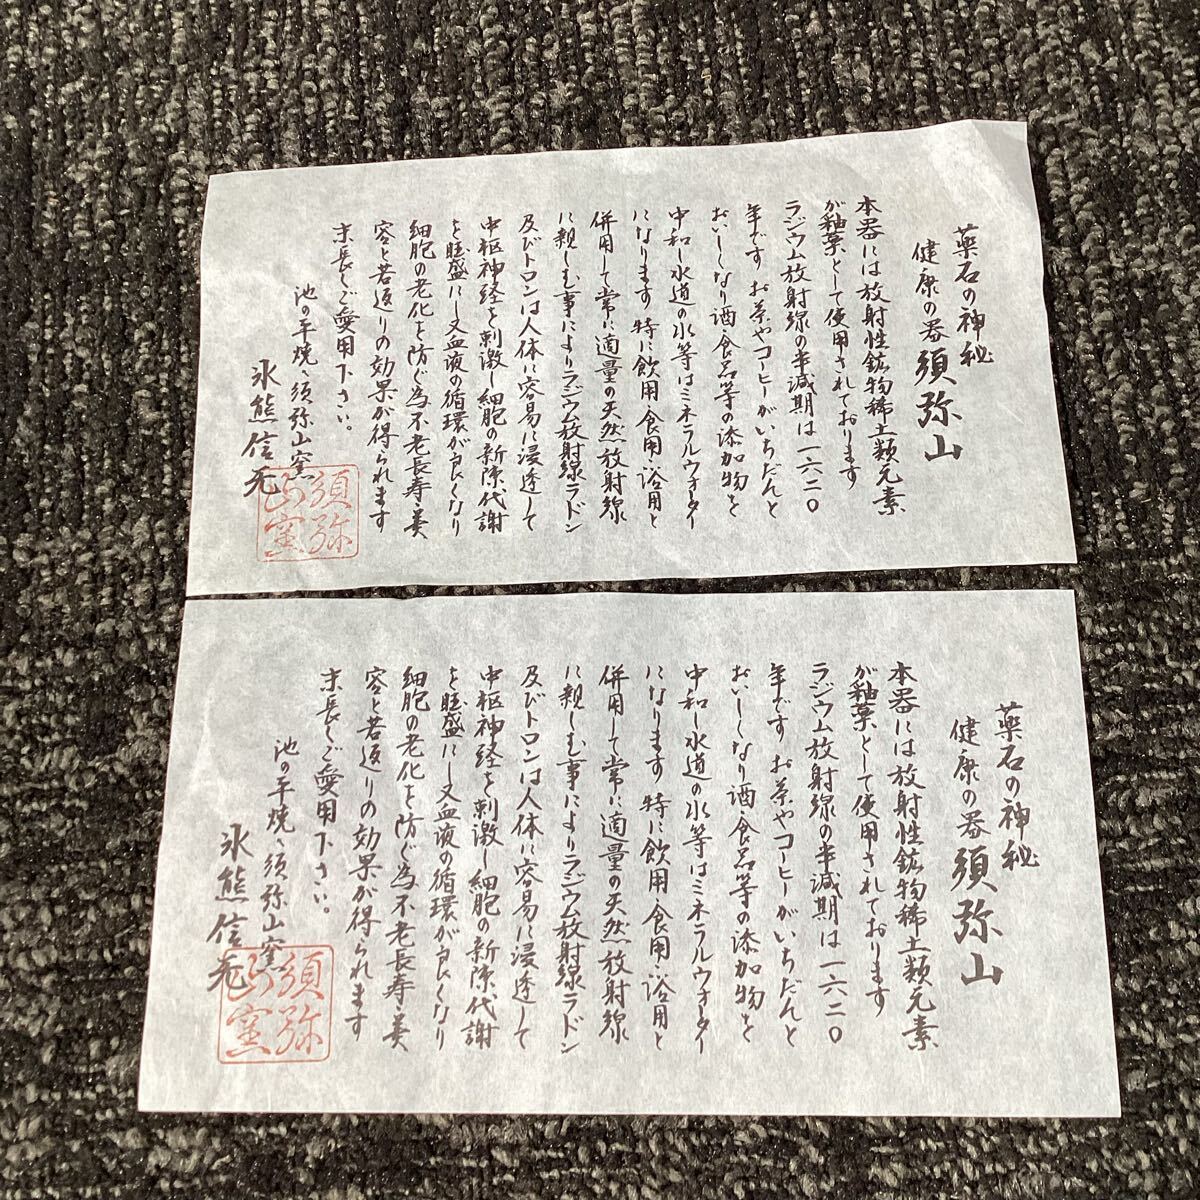 薬石の神秘
健康の器 須弥山
本器には放射性鉱物稀土類元素
が釉薬として使用されております
ラジウム放射線の半減期は一六二〇
年です お茶やコーヒーがいちだんと
おいしくなり酒・食品等の添加物を
中和し水道の水等はミネラルウォーター
になります 特に飲用・食用・浴用と
併用して常に適量の天然放射線
に親しむ事によりラジウム放射線ラドン
及びトロンは人体に容易に浸透して
中枢神経を刺激し細胞の新陳代謝
を旺盛にし又血液の循環が良くなり
細胞の老化を防ぐ為不老長寿・美
容と若返りの効果が得られます
末長くご愛用下さい。
池の平焼、須弥山窯
氷熊信
須弥山窯
薬石の神秘
健康の器 須弥山
本器には放射性鉱物稀土類元素
が釉薬として使用されております
ラジウム放射線の半減期は一六二〇
年です お茶やコーヒーがいちだんと
おいしくなり酒・食品等の添加物を
中和し水道の水等はミネラルウォーター
になります 特に飲用・食用・浴用と
併用して常に適量の天然放射線
に親しむ事によりラジウム放射線ラドン
及びトロンは人体に容易に浸透して
中枢神経を刺激し細胞の新陳代謝
を旺盛にし又血液の循環が良くなり
細胞の老化を防ぐ為不老長寿・美
容と若返りの効果が得られます
末長くご愛用下さい。
池の平焼、須弥山窯
氷熊信
須弥山窯